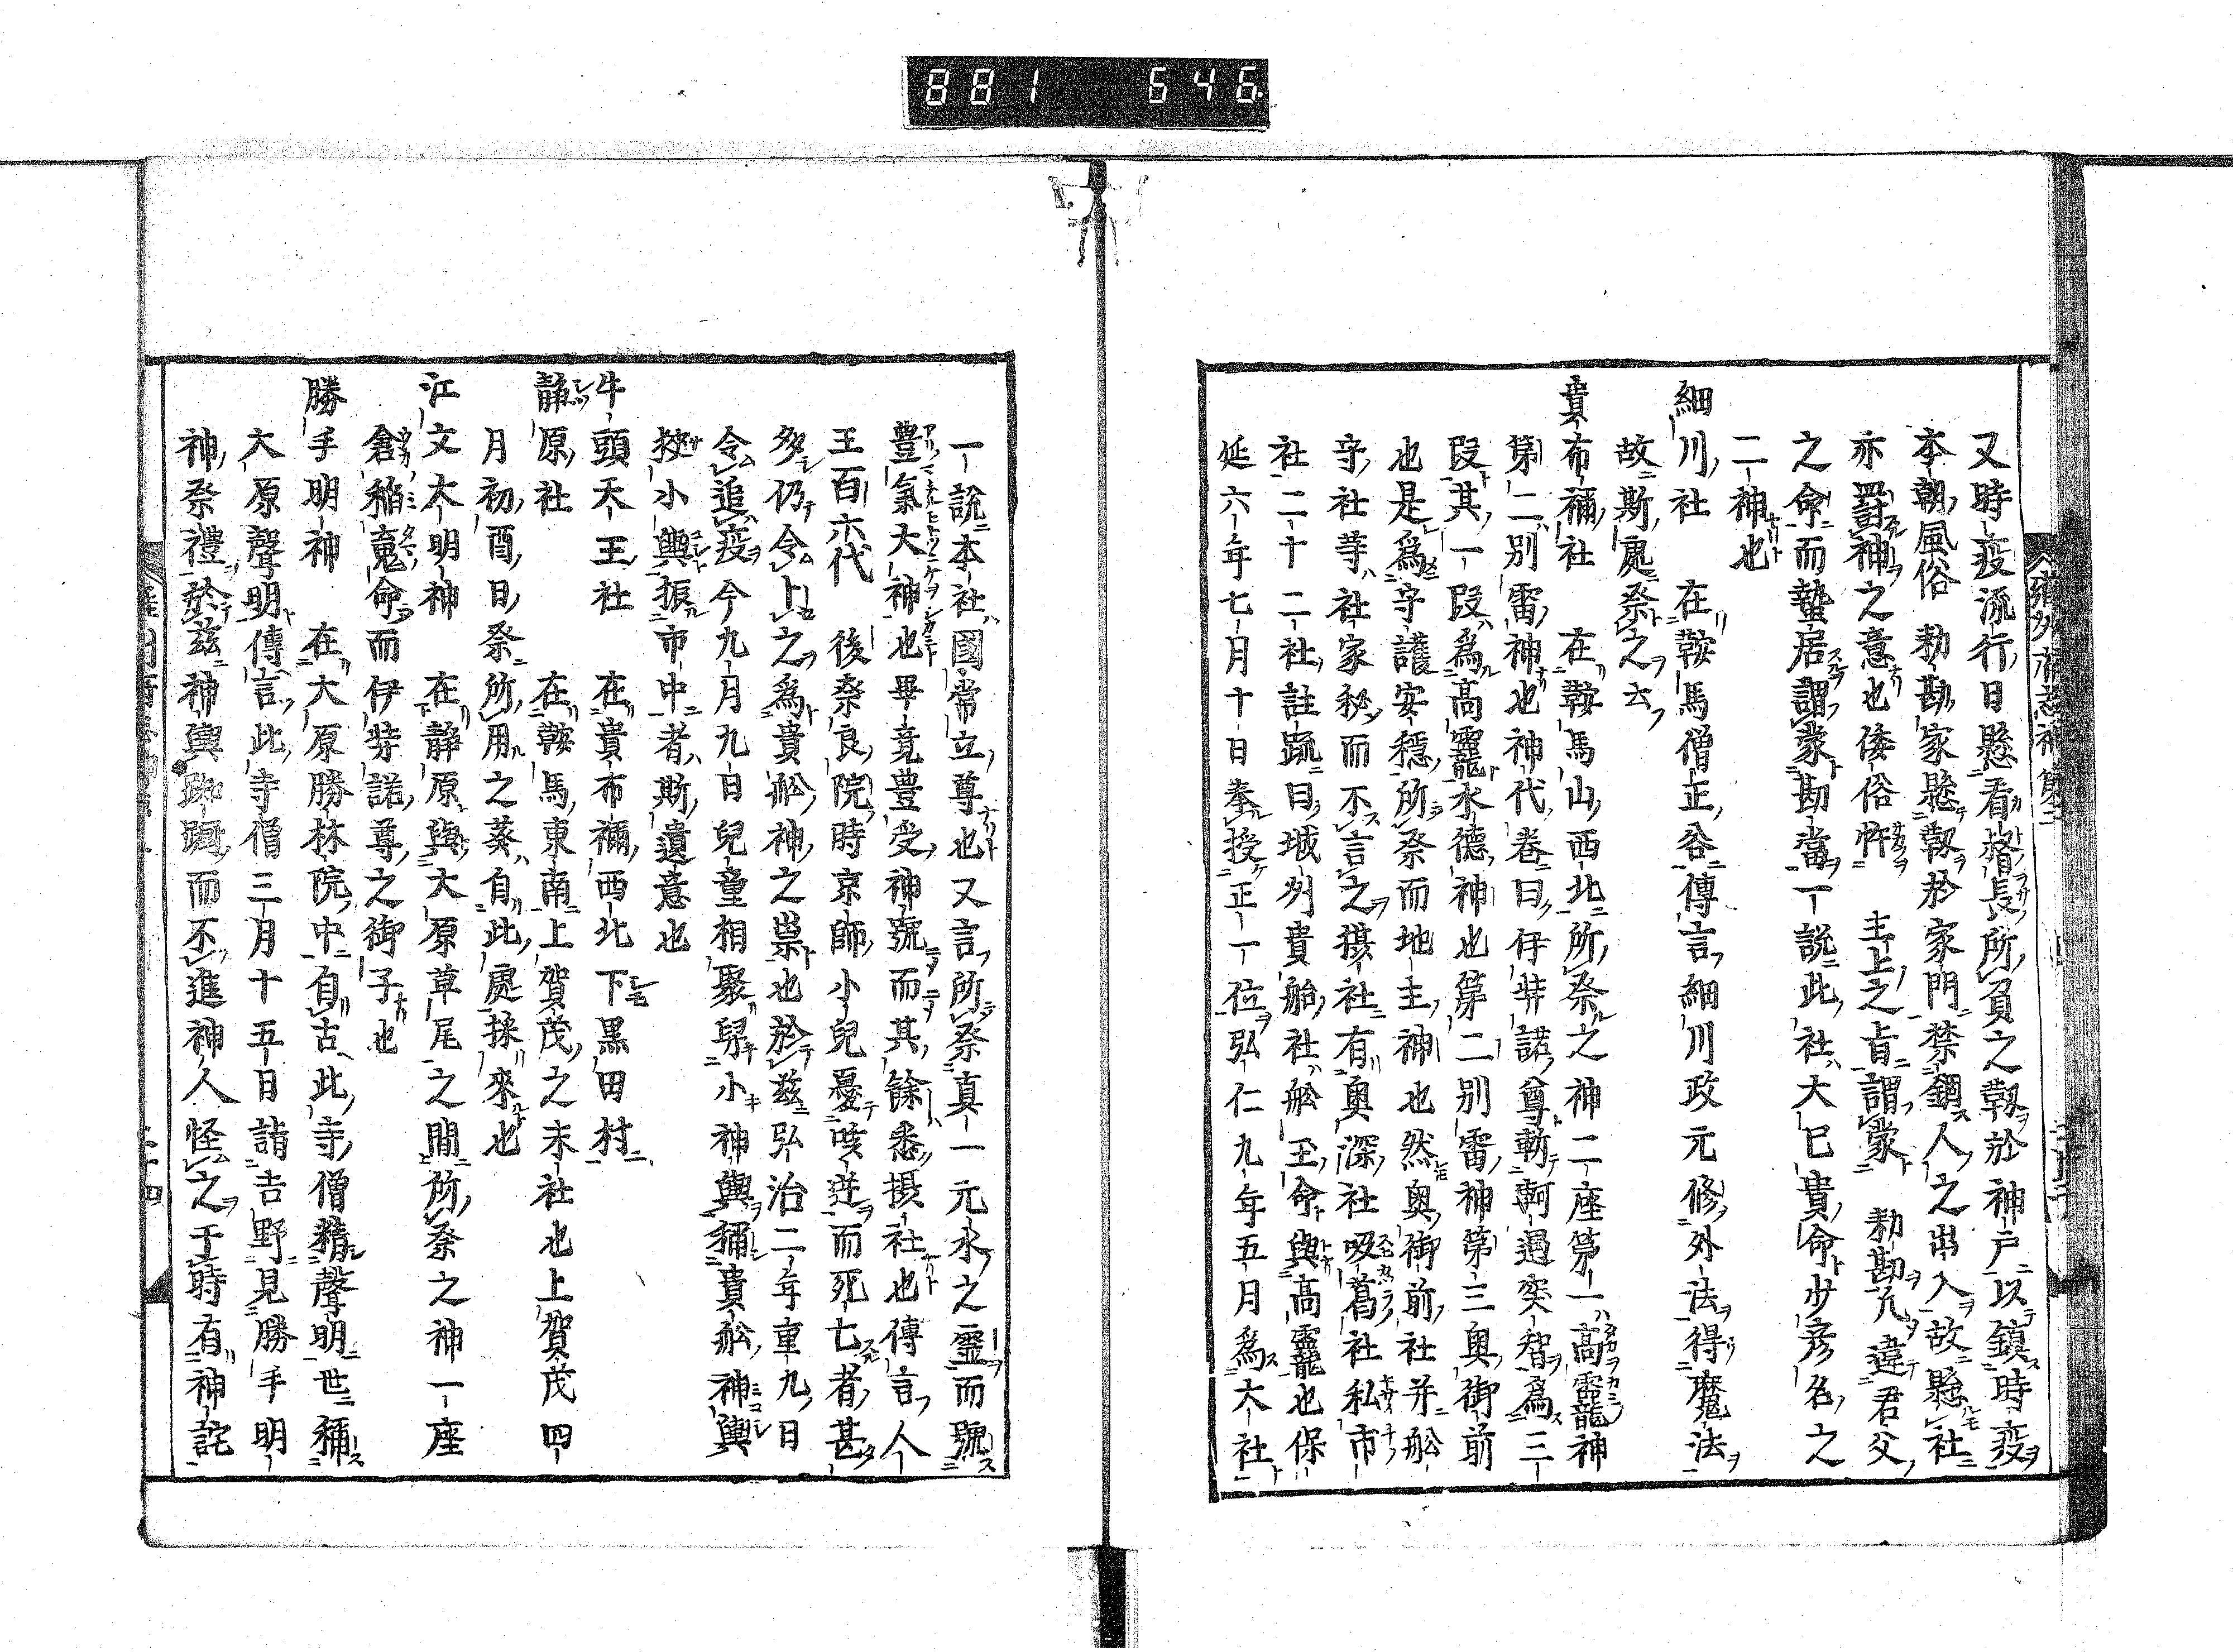 881 646
又時疫流行日懸看督長所負之靱於神戸以鎮時疫
本朝風俗 勅勘家懸靱於家門禁錮人之出入故懸社
亦罸神之意也倭俗忤 主上之㫖謂蒙 勅勘凢違君父
之命而蟄居謂蒙勘當一說此社大已貴命少彦名之
二神也
細川社 在鞍馬僧正谷傳言細川政元修外法得魔法
故斯處祭之云
貴布禰社 在鞍馬山西北所祭之神二座第一高龗神
第二別雷神也神代卷曰伊弉諾尊斬軻遇突智爲三
段其一段爲高龗水德神也第二別雷神第三奥御前
也是爲守護安穩所祭而地主神也然奥御前社并舩
守社等社家秘而不言之摂社有奥深社吸葛社私市
社二十二社註䟽曰城列貴船社舩玉命與高龗也保
延六年七月十日奉授正一位弘仁九年五月爲大社
一說本社國常立尊也又言所祭真一元水之霊而號
豊氣大神也畢竟豊受神號而其餘悉摂社也傳言人
王百六代 後奈良院時京師小兒憂咳逆而死七者甚
多仍令卜之爲貴舩神之祟也於茲弘治二年重九日
令追疫今九月九日兒童相聚舁小神輿稱貴舩神輿
挾小輿振市中者斯遺意也
牛頭天王社 在貴布禰西北下黒田村
静原社 在鞍馬東南上賀茂之末社也上賀茂四
月初酉日祭所用之葵自此處採來也
江文大明神 在静原與大原草尾之間所祭之神一座
倉稲䰟命而伊弉諾尊之御子也
勝手明神 在大原勝林院中自古此寺僧精聲明世稱
大原聲明傳言此寺僧三月十五日詣吉野見勝手明
神祭禮於茲神輿踟蹰而不進神人怪之于時有神託